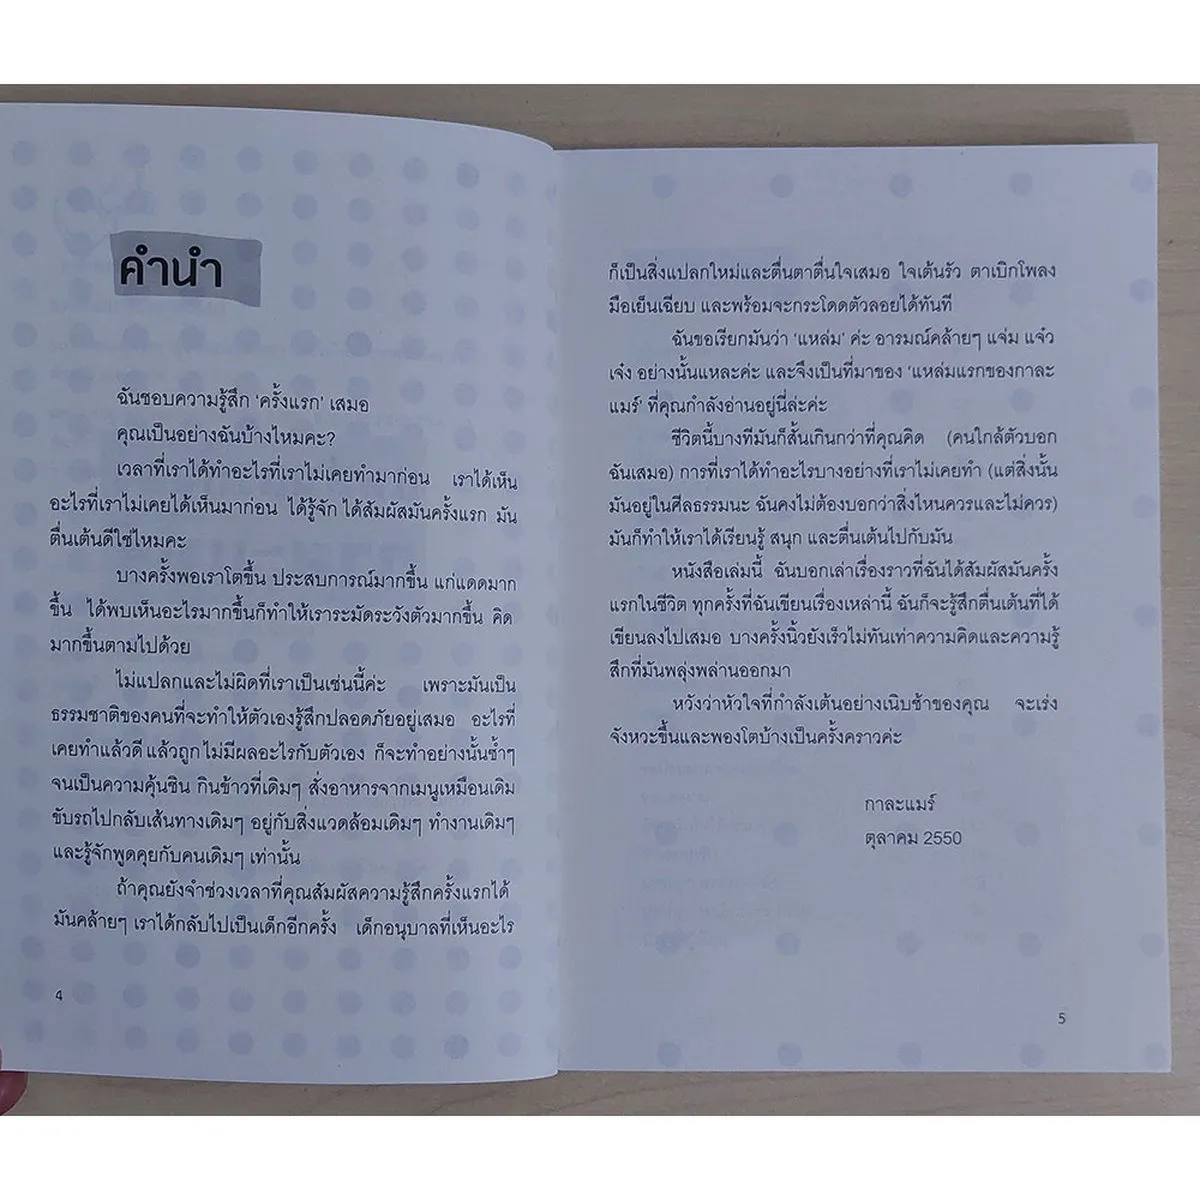 คำนำ
ฉันชอบความรู้สึก ‘ครั้งแรก’ เสมอ
คุณเป็นอย่างฉันบ้างไหมคะ?
เวลาที่เราได้ทำอะไรที่เราไม่เคยทำมาก่อน เราได้เห็น
อะไรที่เราไม่เคยได้เห็นมาก่อน ได้รู้จัก ได้สัมผัสมันครั้งแรก มัน
ตื่นเต้นดีใช่ไหมคะ
บางครั้งพอเราโตขึ้น ประสบการณ์มากขึ้น แก่แดดมาก
ขึ้น ได้พบเห็นอะไรมากขึ้นก็ทำให้เราระมัดระวังตัวมากขึ้น คิด
มากขึ้นตามไปด้วย
ไม่แปลกและไม่ผิดที่เราเป็นเช่นนี้ค่ะ เพราะมันเป็น
ธรรมชาติของคนที่จะทำให้ตัวเองรู้สึกปลอดภัยอยู่เสมอ อะไรที่
เคยทำแล้วดี แล้วถูก ไม่มีผลอะไรกับตัวเอง ก็จะทำอย่างนั้นซ้ำๆ
จนเป็นความคุ้นชิน กินข้าวที่เดิมๆ สั่งอาหารจากเมนูเหมือนเดิม
ขับรถไปกลับเส้นทางเดิมๆ อยู่กับสิ่งแวดล้อมเดิมๆ ทำงานเดิมๆ
และรู้จักพูดคุยกับคนเดิมๆ เท่านั้น
ถ้าคุณยังจำช่วงเวลาที่คุณสัมผัสความรู้สึกครั้งแรกได้
มันคล้ายๆ เราได้กลับไปเป็นเด็กอีกครั้ง เด็กอนุบาลที่เห็นอะไร
4
ก็เป็นสิ่งแปลกใหม่และตื่นตาตื่นใจเสมอ ใจเต้นรัว ตาเบิกโพลง
มือเย็นเฉียบ และพร้อมจะกระโดดตัวลอยได้ทันที
ฉันขอเรียกมันว่า ‘แหล่ม’ ค่ะ อารมณ์คล้ายๆ แจ่ม แจ๋ว
เจ๋ง อย่างนั้นแหละค่ะ และจึงเป็นที่มาของ ‘แหล่มแรกของกาละ
แมร์’ ที่คุณกำลังอ่านอยู่นี่ล่ะค่ะ
ชีวิตนี้บางทีมันก็สั้นเกินกว่าที่คุณคิด (คนใกล้ตัวบอก
ฉันเสมอ) การที่เราได้ทำอะไรบางอย่างที่เราไม่เคยทำ (แต่สิ่งนั้น
มันอยู่ในศีลธรรมนะ ฉันคงไม่ต้องบอกว่าสิ่งไหนควรและไม่ควร)
มันก็ทำให้เราได้เรียนรู้ สนุก และตื่นเต้นไปกับมัน
หนังสือเล่มนี้ ฉันบอกเล่าเรื่องราวที่ฉันได้สัมผัสมันครั้ง
แรกในชีวิต ทุกครั้งที่ฉันเขียนเรื่องเหล่านี้ ฉันก็จะรู้สึกตื่นเต้นที่ได้
เขียนลงไปเสมอ บางครั้งนิ้วยังเร็วไม่ทันเท่าความคิดและความรู้
สึกที่มันพลุ่งพล่านออกมา
หวังว่าหัวใจที่กำลังเต้นอย่างเนิบช้าของคุณ จะเร่ง
จังหวะขึ้นและพองโตบ้างเป็นครั้งคราวค่ะ
กาละแมร์
ตุลาคม 2550
5